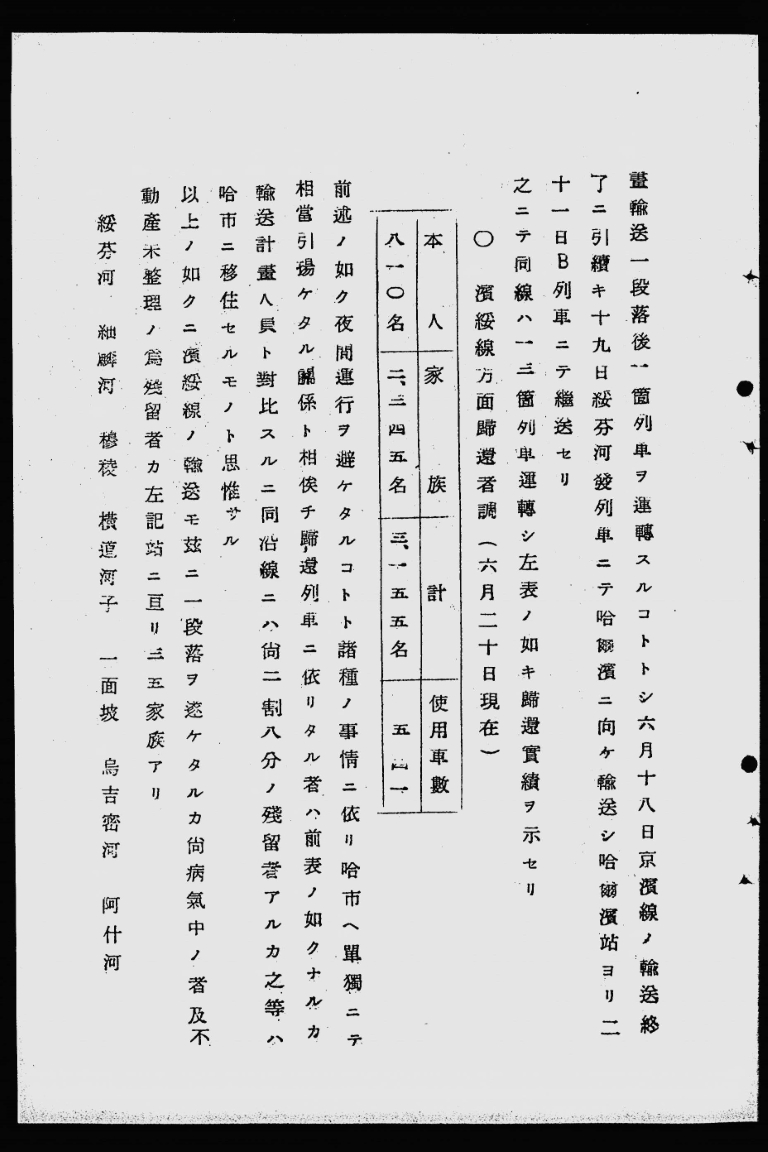 畫輸送一段落後一箇列車ヲ運轉スルコトトシ六月十八日京濱線ノ輸送終
了ニ引續キ十九日綏芬河發列車ニテ哈爾濱ニ向ケ輸送シ哈爾濱站ヨリ二
十一日B列車ニテ繼送セリ
之ニテ同線ハ一三箇列車運轉シ左表ノ如キ歸還實績ヲ示セリ
〇 濱綏線方面歸還者調（六月二十日現在）
本人 家族 計 使用車數
八一〇名 二、三四五名 三、一五五名 五
前述ノ如ク夜間運行ヲ避ケタルコトト諸種ノ事情ニ依リ哈市ヘ單獨ニテ
相當引揚ケタル關係ト相俟チ歸還列車ニ依リタル者ハ前表ノ如クナルカ
輸送計畫人員ト對比スルニ同沿線ニハ尙二割八分ノ殘留者アルカ之等ハ
哈市ニ移住セルモノト思惟サル
以上ノ如クニ濱綏線ノ輸送モ茲ニ一段落ヲ遂ケタルカ尙病氣中ノ者及不
動產未整理ノ爲殘留者カ左記站ニ亘リ三五家族アリ
綏芬河 細鱗河 穆稜 橫道河子 一面坡 烏吉密河 阿什河